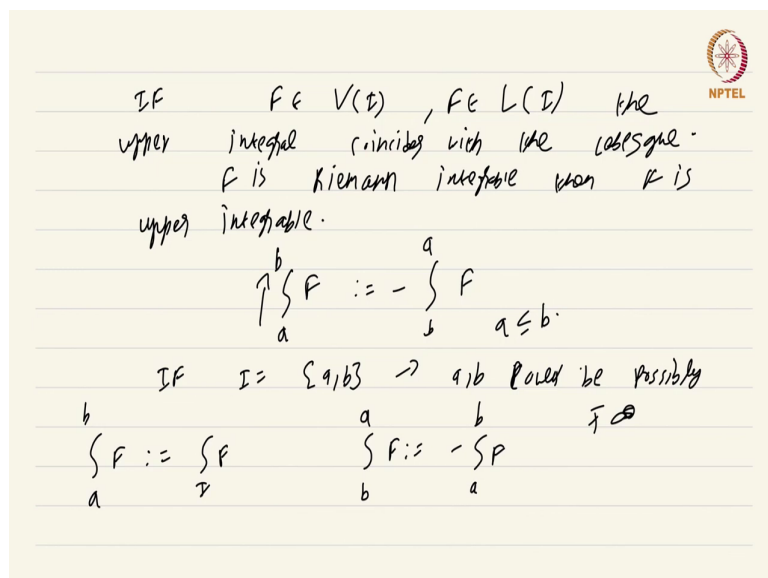 NPTEL
IF F ∈ V(I), F ∈ L(I) the
upper integral coincides with the Lebesgue.
F is Riemann integrable then F is
upper integrable.
↑∫_a^b F := - ∫_b^a F a ≤ b.
IF I = {a,b} → a,b could be possibly
∓∞
∫_a^b F := ∫_I F ∫_b^a F := - ∫_a^b F